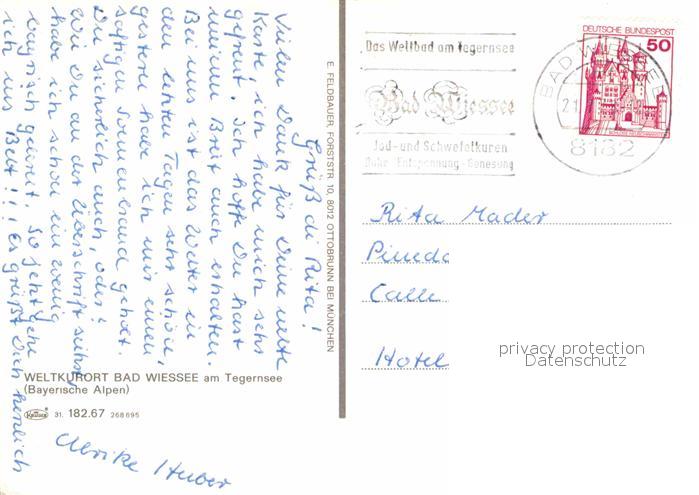 Grüß di Rita!
Vielen Dank für Deine nette
Karte, ich habe mich sehr
gefreut. Ich hoffe Du hast
meinen Brief auch erhalten.
Bei uns ist das Wetter in
den letzten Tagen sehr schön,
gestern habe ich mir einen
saftigen Sonnenbrand geholt.
Du sicherlich auch, oder?
Wie Du an der Überschrift siehst,
habe ich schon ein wenig
bayrisch gelernt. So jetzt gehe
ich ins Bett!!! Es grüßt Dich herzlich
Ulrike Huber
WELTKURORT BAD WIESSEE am Tegernsee
(Bayerische Alpen)
Krüger 31. 182.67 268695
E. FELDBAUER, FORSTSTR. 10, 8012 OTTOBRUNN BEI MÜNCHEN
Das Weltbad am Tegernsee
Bad Wiessee
Jod- und Schwefelkuren
Ruhe Entspannung Genesung
DEUTSCHE BUNDESPOST
50
BAD WIESSEE
21
8182
Rita Mader
Pineda
Calle
Hotel
privacy protection
Datenschutz